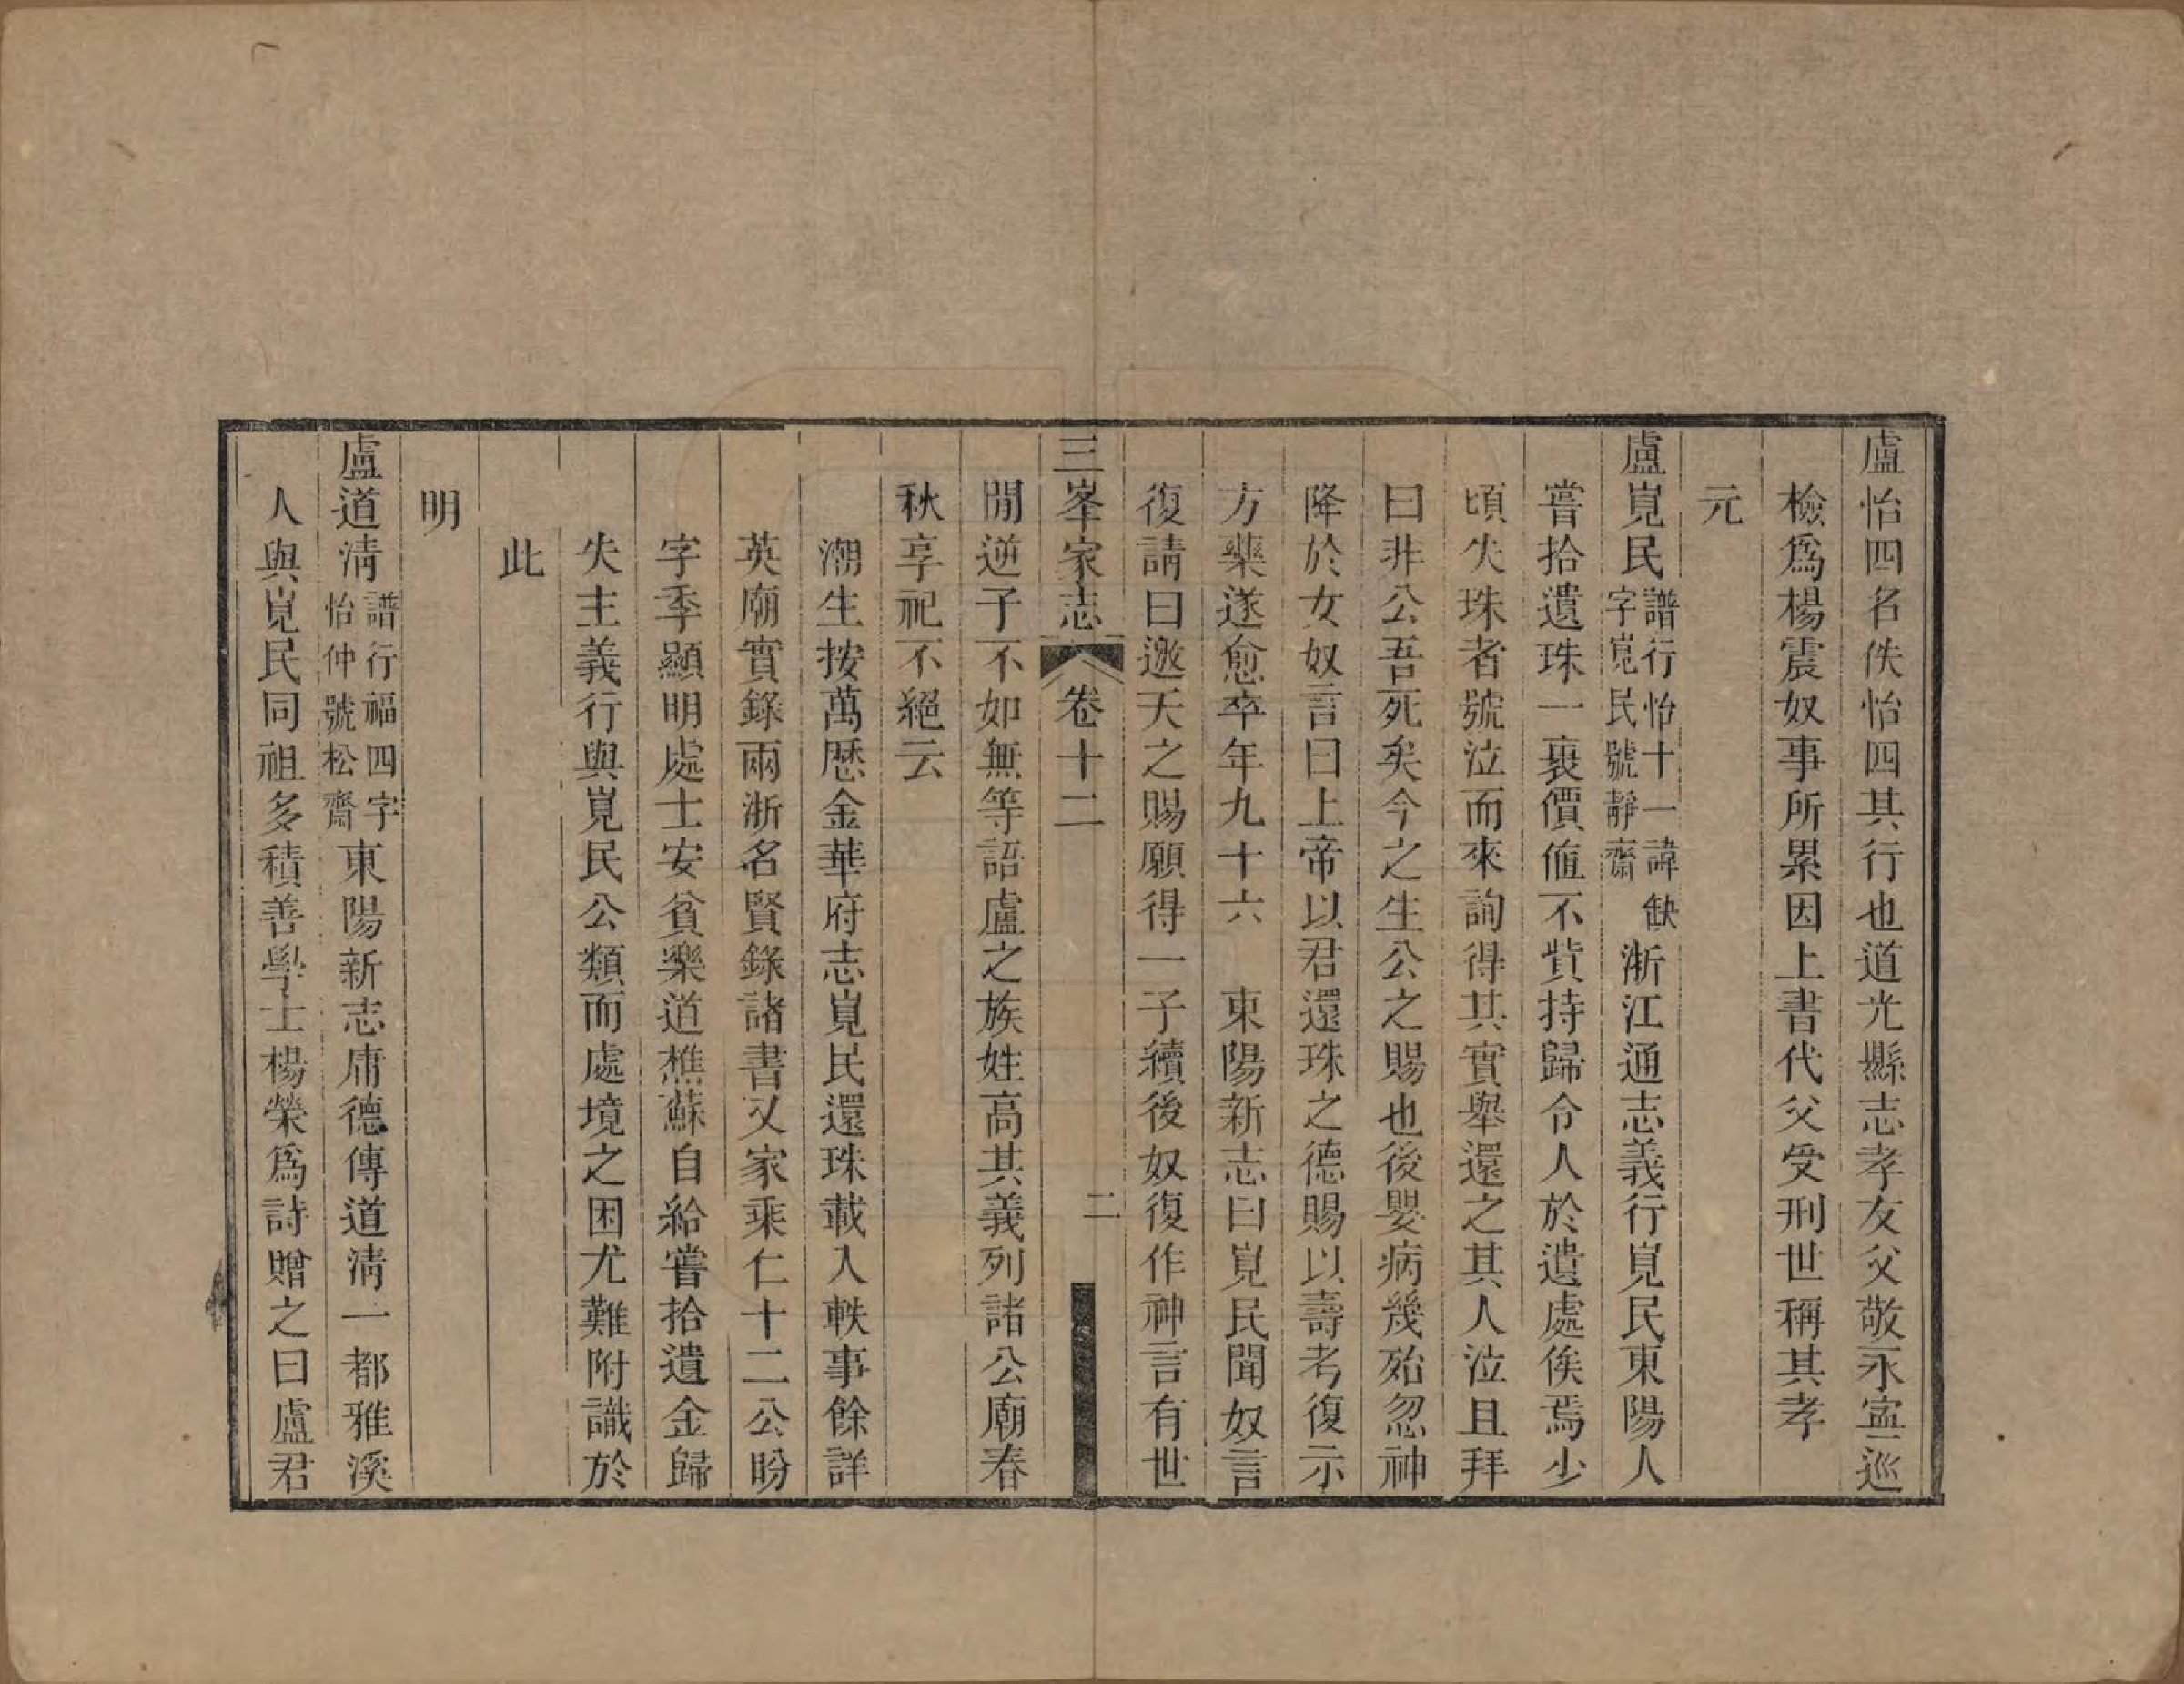 盧怡四名佚怡四其行也道光縣志孝友父敬永寍巡
檢爲楊震奴事所累因上書代父受刑世稱其孝
元
盧覓民譜行怡十一諱缺字覓民號靜齋浙江通志義行覓民東陽人
嘗拾遺珠一裹價値不貲持歸令人於遺處俟焉少
頃失珠者號泣而來詢得其實舉還之其人泣且拜
曰非公吾死矣今之生公之賜也後嬰病幾殆忽神
降於女奴言曰上帝以君還珠之德賜以壽考復示
方藥遂愈卒年九十六　東陽新志曰覓民聞奴言
復請曰邀天之賜願得一子續後奴復作神言有世
三峯家志　卷十二　二
閒逆子不如無等語盧之族姓高其義列諸公廟春
秋享祀不絕云
潮生按萬歷金華府志覓民還珠載入軼事餘詳
英廟實錄兩浙名賢錄諸書又家乘仁十二公昐
字季顯明處士安貧樂道樵蘇自給嘗拾遺金歸
失主義行與覓民公類而處境之困尤難附識於
此
明
盧道淸譜行福四字怡仲號松齋東陽新志庸德傳道淸一都雅溪
人與覓民同祖多積善學士楊榮爲詩贈之曰盧君